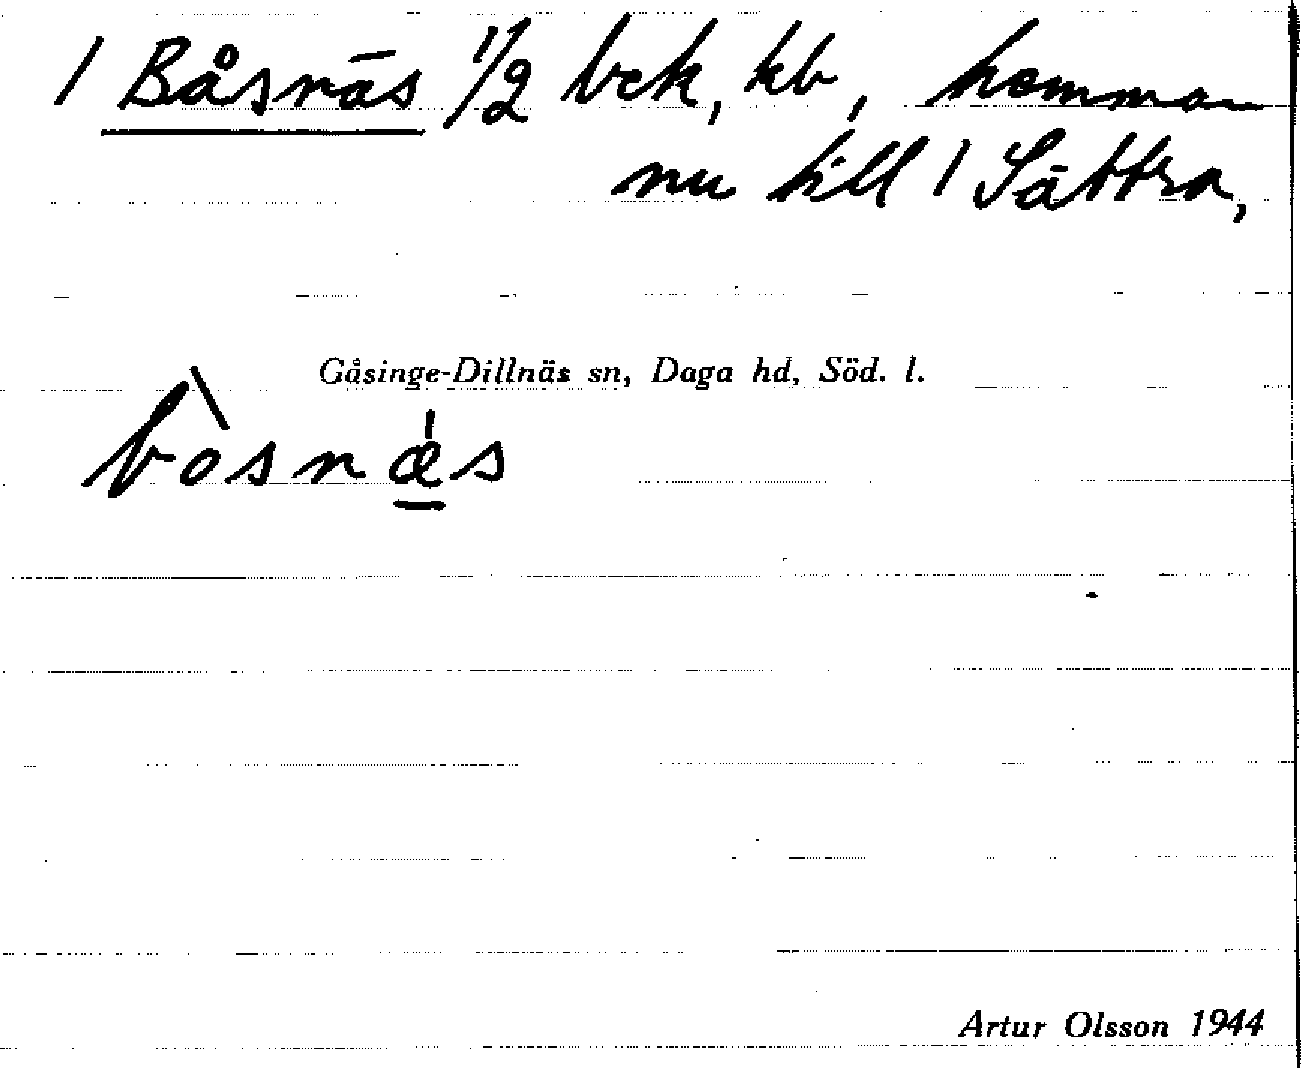 1 Båsnäs 1/2 bck, kb, hemman
nu till 1 Sättra,
Gåsinge-Dillnäs sn, Daga hd, Söd. l.
bòsnǽ̱s
Artur Olsson 1944